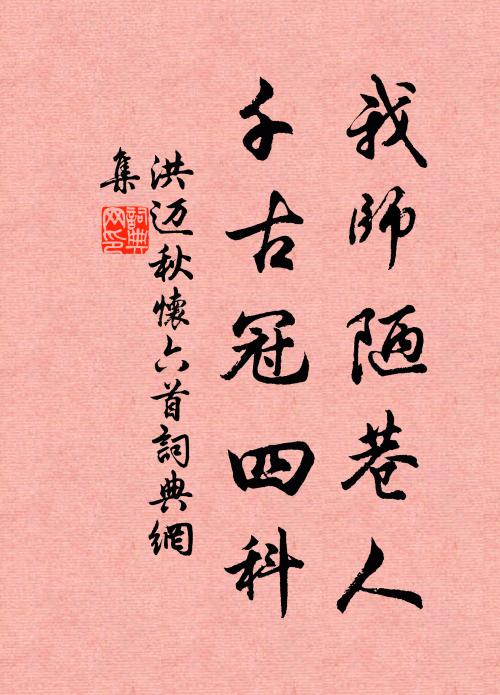 我師陋巷人
千古冠四科
洪迈秋懷六首詞典網
集
詞典
网印